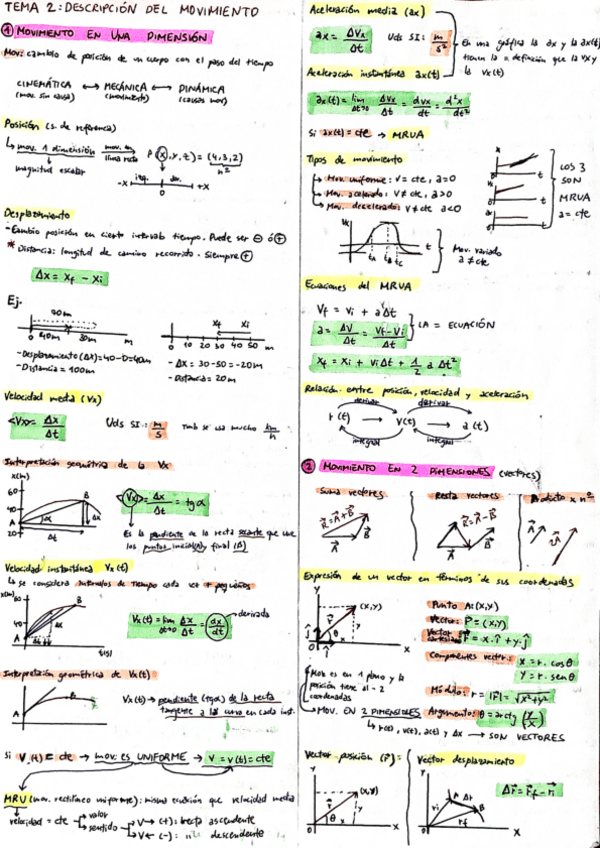 TEMA 2: DESCRIPCIÓN DEL MOVIMIENTO
① MOVIMIENTO EN UNA DIMENSIÓN
Mov: cambio de posición de un cuerpo con el paso del tiempo
CINEMÁTICA ↔ MECÁNICA ↔ DINÁMICA
(mov. sin causa) (movimiento) (causas mov)
Posición (s. de referencia)
mov. 1 dimensión mov. en línea recta P(x,y,z) = (4,3,2)
magnitud escalar
-X 0 +X
Desplazamiento
- Cambio posición en cierto intervalo tiempo. Puede ser ⊖ ó ⊕
* Distancia: longitud de camino recorrido. Siempre ⊕
Δx = Xf - Xi
Ej.
70m
0 40m 30m m
- Desplazamiento (Δx) = 40-0=40m
- Distancia = 100m
xf xi
0 10 20 30 40 50 m
- Δx = 30-50 = -20m
- Distancia = 20m
Velocidad media (Vx)
<Vx> = Δx/Δt Uds SI: m/s Tmb se usa mucho km/h
Interpretación geométrica de la Vx
x(m)
60
40
20
A B α Δx
Δt
<Vx> = Δx/Δt = tg α
Es la pendiente de la recta secante que une los puntos inicial(A) y final (B)
Velocidad instantánea Vx(t)
↳ se considera intervalos de tiempo cada vez + pequeños
x(m)
40
A B
t(s)
Vx(t) = lim Δt→0 Δx/Δt = dx/dt → derivada
Interpretación geométrica de Vx(t)
A
Vx(t) → pendiente (tgα) de la recta tangente a la curva en cada inst.
Si Vx(t) = cte → mov. es UNIFORME → V = v(t) = cte
MRU (mov. rectilíneo uniforme): misma ecuación que velocidad media
velocidad = cte valor
sentido V→ (+): trecta ascendente
V← (-): " descendente
Aceleración media (ax)
ax = ΔVx/Δt Uds SI: m/s²
En una gráfica la ax y la ax(t) tienen la = definición que la Vx y la Vx(t)
Aceleración instantánea ax(t)
ax(t) = lim Δt→0 ΔVx/Δt = dvx/dt = d²x/dt²
Si ax(t) = cte → MRVA
Tipos de movimiento
Mov. uniforme: v = cte, a=0
Mov. acelerado: v ≠ cte, a>0
Mov. decelerado: v ≠ cte a<0
LOS 3 SON MRVA a = cte
Vx tA tB tC t
Mov. variado a ≠ cte
Ecuaciones del MRVA
Vf = Vi + aΔt
a = ΔV/Δt = Vf-Vi/Δt
LA = ECUACIÓN
Xf = Xi + ViΔt + 1/2 a Δt²
Relación entre posición, velocidad y aceleración
derivar derivar
r(t) v(t) a(t)
integral integral
② MOVIMIENTO EN 2 DIMENSIONES (vectores)
Suma vectores Resta vectores Producto x nº
R=A+B A B
R=A-B A B
A
Expresión de un vector en términos de sus coordenadas
y (x,y) r θ y x
Punto A: (x,y)
Vector: P = (x,y)
Vector cartesiano r = x·i + y·j
Componentes vector: x = r·cosθ
y = r·senθ
Módulo: r = |r| = √x²+y²
Argumento: θ = arctg (y/x)
Mov es en 1 plano y la posición tiene al - 2 coordenadas
→ MOV. EN 2 DIMENSIONES
↳ r(t), v(t), a(t) y Δx → SON VECTORES
Vector posición (r): Vector desplazamiento
Y (x,y) r θ y X
Y A Δr B ri rf X
Δr = rf - ri